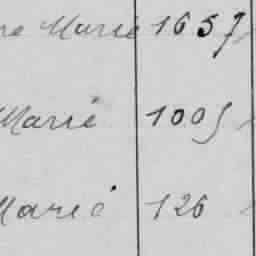 ne Marie 1657
Marie 1005
Marie 126